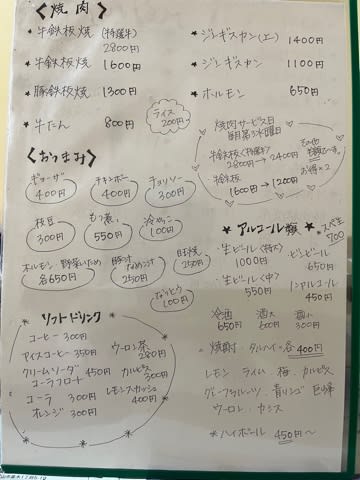 <焼肉>
* 牛鉄板焼 (特選牛) 2800円
* 牛鉄板焼 1600円
* 豚鉄板焼 1300円
* 牛たん 800円
* ジンギスカン(上) 1400円
* ジンギスカン 1100円
* ホルモン 650円
ライス 200円
焼肉サービス日
毎月第3水曜日
牛鉄板<特選牛>
2800円→2400円
牛鉄板
1600円→1200円
お得×2
<おつまみ>
ギョーザ 400円
チキンボー 400円
チョリソー 300円
枝豆 300円
もつ煮 550円
冷やっこ 100円
ホルモン 野菜いため 各650円
250円
250円
なっとう 100円
ソフトドリンク
コーヒー 300円
アイスコーヒー 350円
クリームソーダ 450円
コーラフロート
コーラ 300円
オレンジ 300円
ウーロン茶 280円
カルピス 300円
レモンスカッシュ 400円
* アルコール類 *
・生ビール<特大> 1000円
・生ビール<中> 550円
・ビンビール 650円
・ノンアルコール 450円
冷酒 650円
酒大 600円
酒小 300円
。焼酎・タルハイ・各400円
レモン ライム 梅 カルピス
グレープフルーツ 青リンゴ 巨峰
ウーロン カシス
*ハイボール 450円〜